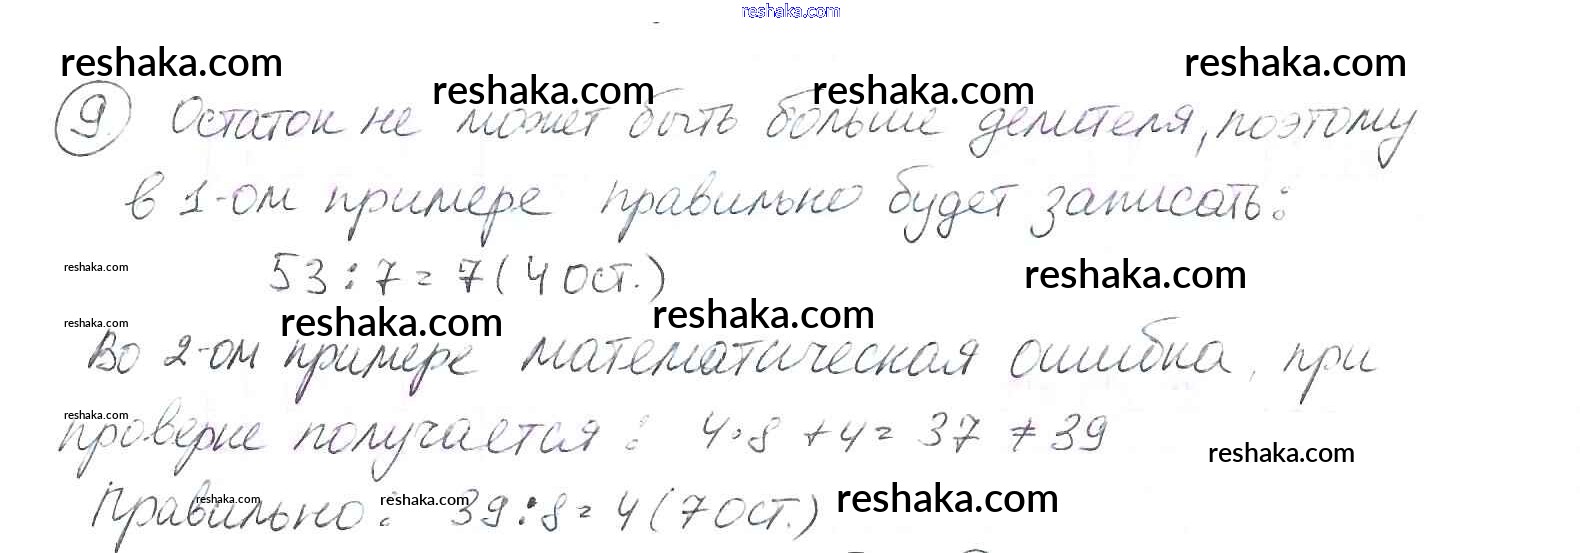 reshaka.com
reshaka.com reshaka.com reshaka.com reshaka.com
9 Остаток не может быть больше делителя, поэтому
в 1-ом примере правильно будет записать:
reshaka.com 53 : 7 = 7 (4 ост.) reshaka.com
reshaka.com reshaka.com reshaka.com
Во 2-ом примере математическая ошибка, при
reshaka.com
проверке получается : 4 · 8 + 4 = 37 ≠ 39
reshaka.com
Правильно : 39 : 8 = 4 (7 ост.)
reshaka.com reshaka.com reshaka.com